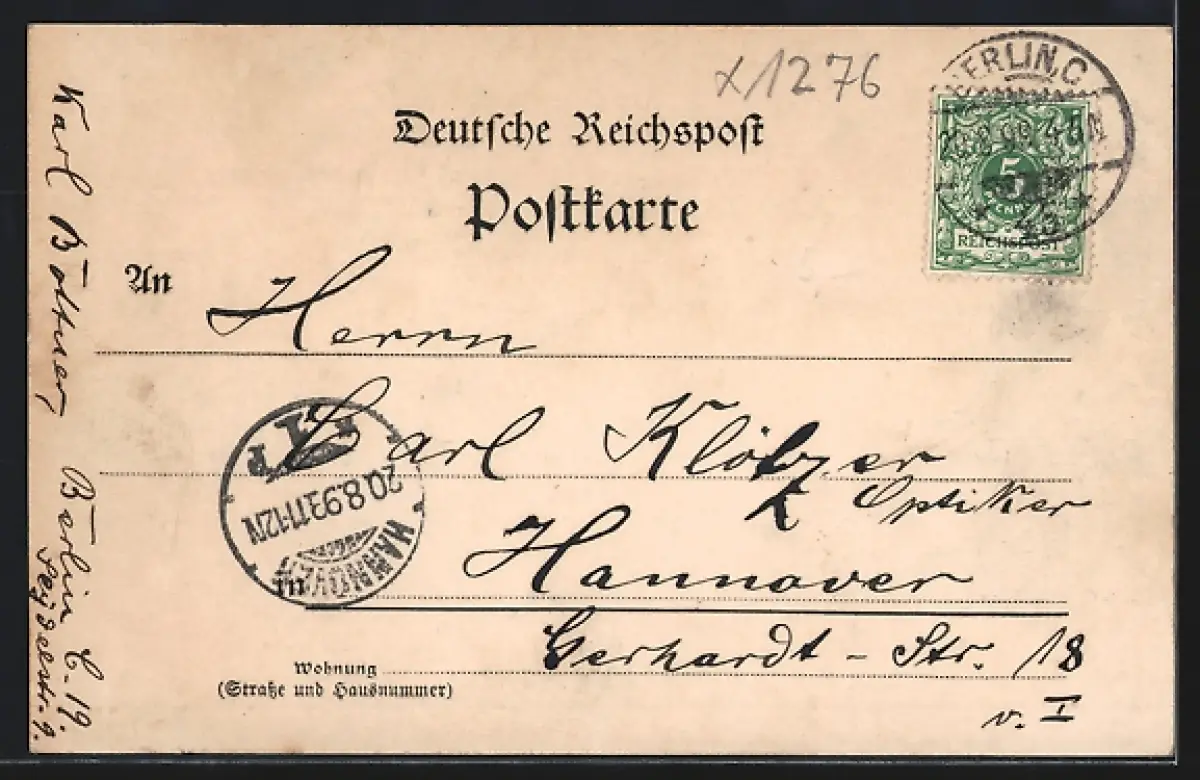 x1276
BERLIN, C.
5
REICHSPOST
43
Deutsche Reichspost
Postkarte
An
Herrn
Carl Klötzer
Optiker
in Hannover
Gerhardt-Str. 18
v. I
Wohnung
(Straße und Hausnummer)
HANNOVER
20.8.93.11-12N
Karl Böttner,
Berlin C. 19.
Seydelstr. 9.